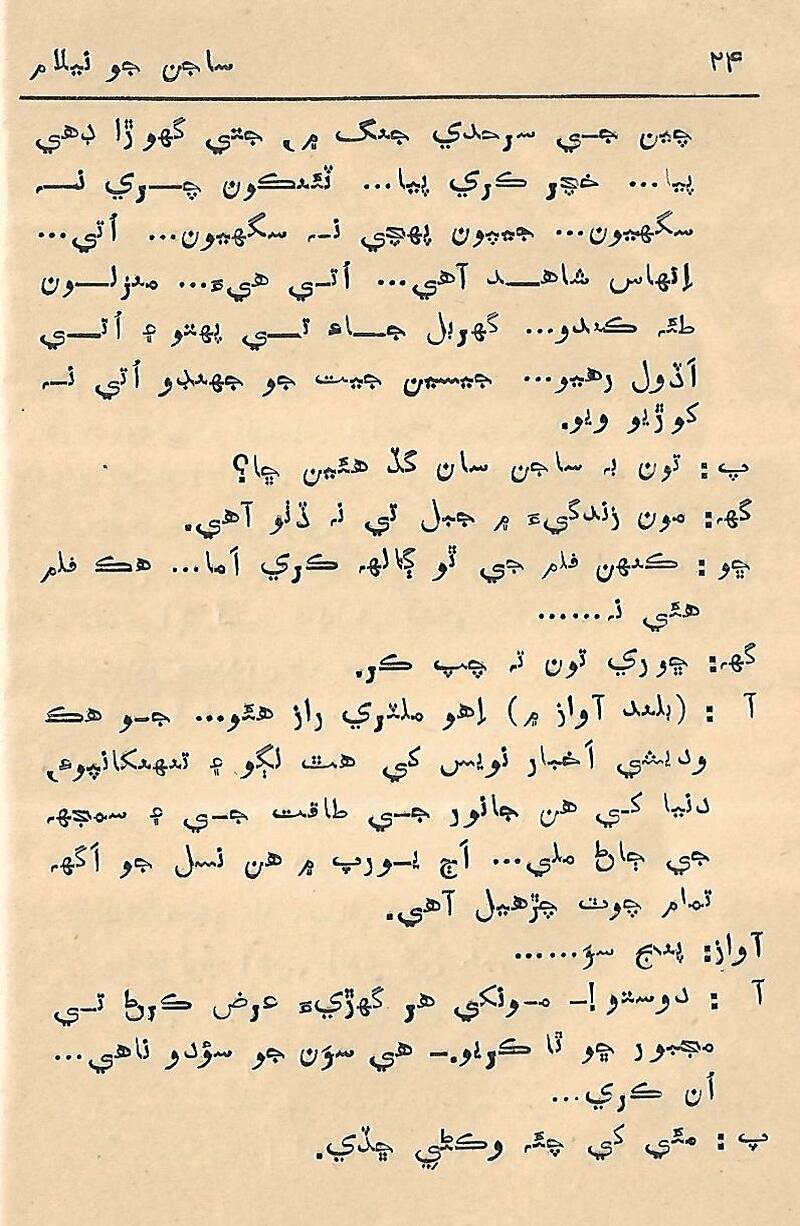 ۲۴ ساجن جو نيلام
چين جي سرحدي جنگ ۾، جتي گهوڙا ڊهي
پيا... خچر ڪري پيا... ٽئنڪون چڙهي نه
سگهيون... جيپون پهچي نه سگهيون... اُتي...
اِتهاس شاهد آهي... اُتي هيءَ... منزلون
طئه ڪندو... گهربل جاءِ تي پهتو ۽ اُتي
اَڏول رهيو... جيسين جيت جو جهنڊو اُتي نه
کوڙيو ويو.
پ : تون به ساجن سان گڏ هئين ڇا؟
گهه: مون زندگيءَ ۾ جبل ئي نه ڏٺو آهي.
ڇو : ڪنهن فلم جي ٿو ڳالهه ڪري اَما... هڪ فلم
هئي نه......
گهه: ڇوري تون ته چپ ڪر.
آ : (بلند آواز ۾) اِهو ملٽري راز هئو... جو هڪ
وديشي اَخبار نويس کي هٿ لڳو ۽ تنهنکانپوءِ،
دنيا کي هن جانور جي طاقت جي ۽ سمجهه
جي ڄاڻ ملي... اَڄ يورپ ۾ هن نسل جو اَگهه
تمام چوٽ چڙهيل آهي.
آواز: پنج سؤ......
آ : دوستو!- مونکي هر گهڙيءَ عرض ڪرڻ تي
مجبور ڇو ٿا ڪريو.- هي سوَن جو سؤدو ناهي...
اُن ڪري...
پ : مئي کي چئه وڪڻي ڇڏي.